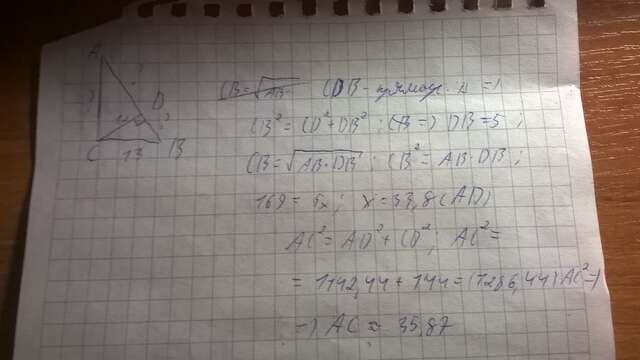 A
D
C 13 B
CB = √AB· CDB - прямоуг. Δ =>
CB² = CD² + DB² ; => DB = 5 ;
CB = √AB·DB ; CB² = AB·DB ;
169 = 5x ; x = 33,8 (AD)
AC² = AD² + CD² ; AC² =
= 1142,44 + 144 = (1286,44) AC² =>
=> AC ≈ 35,87